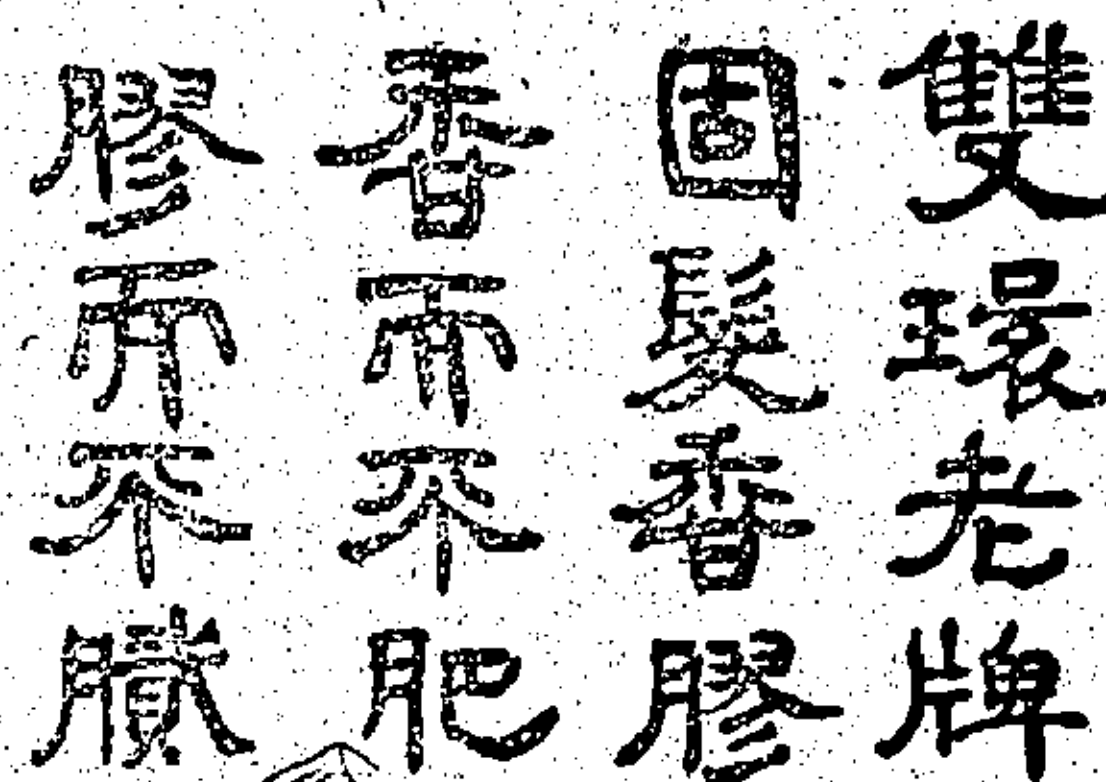 雙環老牌
固髮香膠
香而不肥
膠而不膩